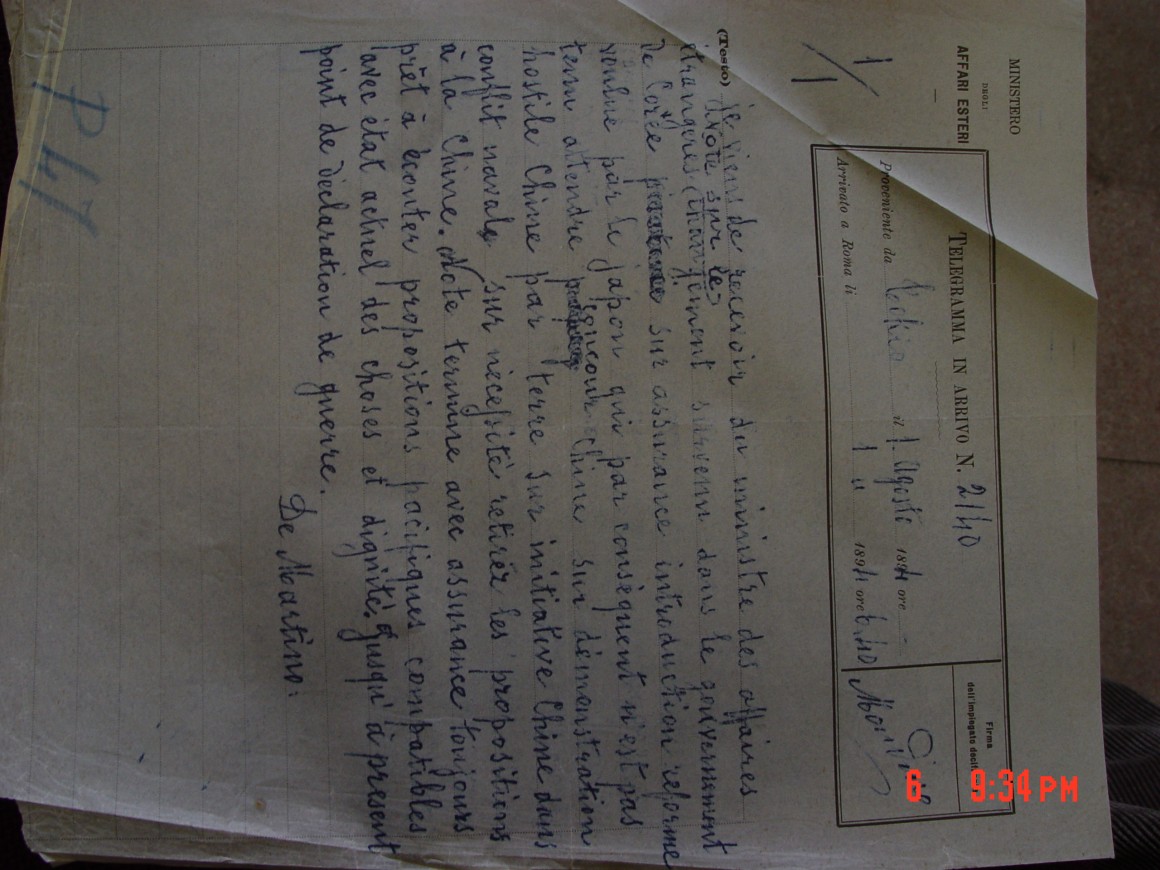 MINISTERO
DEGLI
AFFARI ESTERI
TELEGRAMMA IN ARRIVO N. 2140
Proveniente da Tockio il 1. Agosto 1894 ore
Arrivato a Roma li 1 " 1894 ore 6,40
Firma
(Testo) Je viens de recevoir du ministre des affaires
étrangères Note sur le changement survenu dans le gouvernement
de Corée sur assurance introduction reforme
voulue par le japon qui par conséquent n'est pas
tenu attendre concour Chine sur démonstration
hostile Chine par terre sur initiative Chine dans
conflit navale sur nécessité retirée les propositions
à la Chine. Note termine avec assurance toujours
prêt à écouter propositions pacifiques compatibles
avec état actuel des choses et dignité. Jusqu'à présent
point de déclaration de guerre.
De Martino.
6 9:34 PM